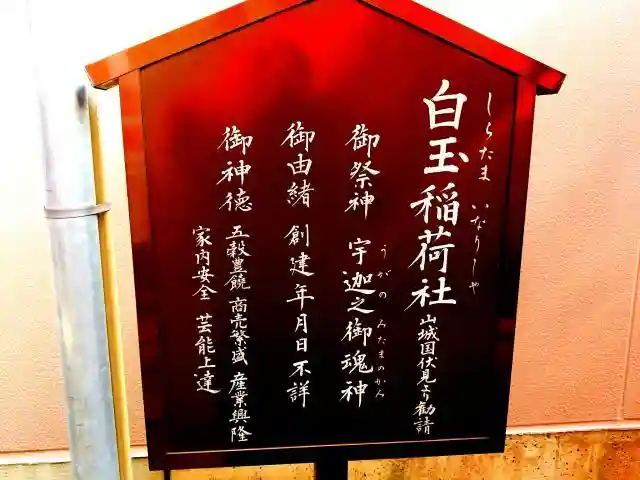 しらたま いなりしゃ
白玉稲荷社 山城国伏見より勧請
うがの みたまのかみ
御祭神 宇迦之御魂神
御由緒 創建年月日不詳
御神徳 五穀豊饒 商売繁盛 産業興隆
家内安全 芸能上達